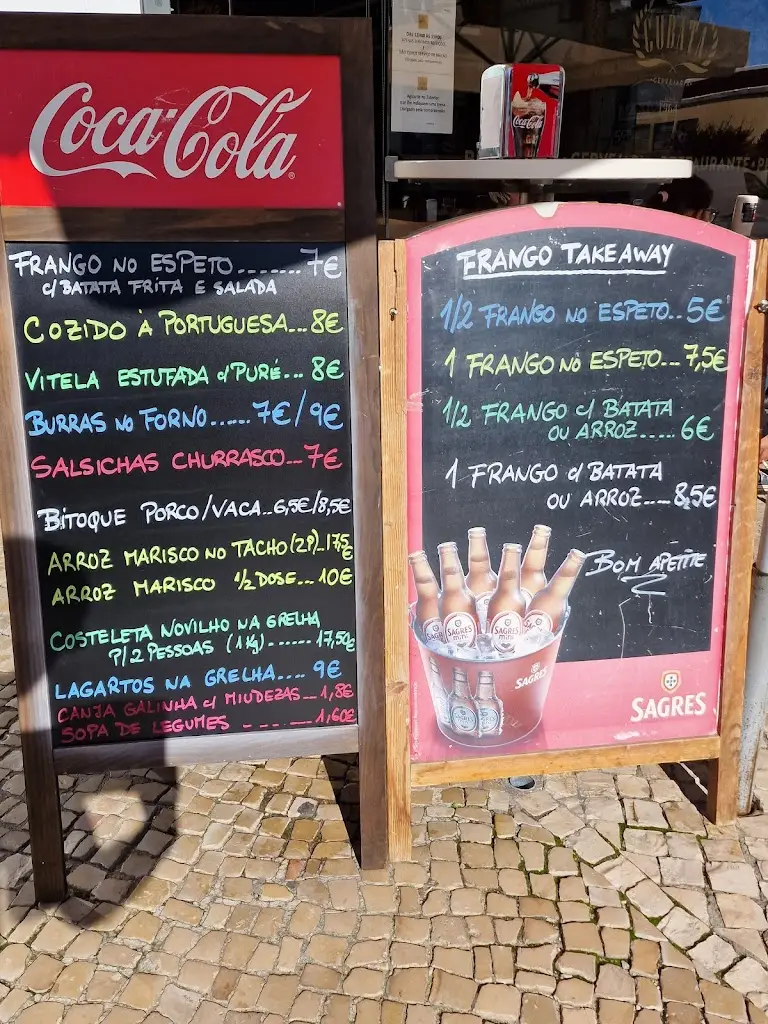 Coca-Cola
FRANGO NO ESPETO........7€
c/ BATATA FRITA E SALADA
COZIDO À PORTUGUESA...8€
VITELA ESTUFADA c/ PURÉ...8€
BURRAS NO FORNO......7€/9€
SALSICHAS CHURRASCO...7€
BITOQUE PORCO/VACA..6,5€/8,5€
ARROZ MARISCO NO TACHO (2P)..17,5€
ARROZ MARISCO 1/2 DOSE...10€
COSTELETA NOVILHO NA GRELHA
P/2 PESSOAS (1Kg)......17,50€
LAGARTOS NA GRELHA.... 9€
CANJA GALINHA c/ MIUDEZAS...1,8€
SOPA DE LEGUMES ........1,60€
Coca-Cola
FRANGO TAKEAWAY
1/2 FRANGO NO ESPETO..5€
1 FRANGO NO ESPETO...7,5€
1/2 FRANGO c/ BATATA
OU ARROZ..... 6€
1 FRANGO c/ BATATA
OU ARROZ....8,5€
BOM APETITE
SAGRES
mini
SAGRES
mini
SAGRES
SAGRES